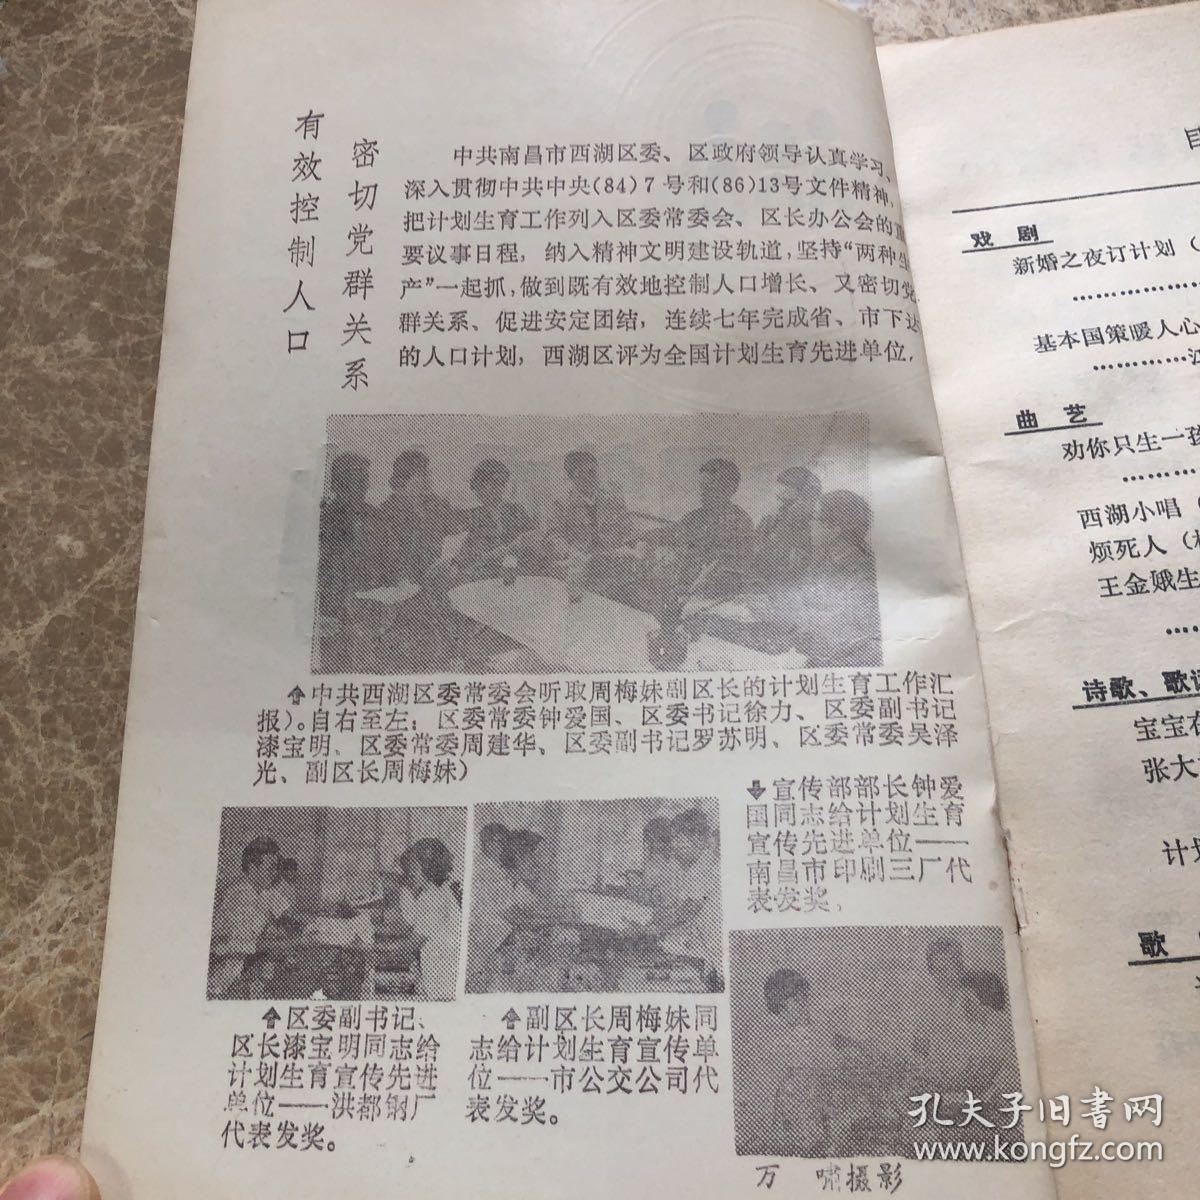 密切党群关系
有效控制人口
中共南昌市西湖区委、区政府领导认真学习、
深入贯彻中共中央(84)7号和(86)13号文件精神，
把计划生育工作列入区委常委会、区长办公会的重
要议事日程，纳入精神文明建设轨道，坚持“两种生
产”一起抓，做到既有效地控制人口增长、又密切党
群关系、促进安定团结，连续七年完成省、市下达
的人口计划，西湖区评为全国计划生育先进单位，
中共西湖区委常委会听取周梅妹副区长的计划生育工作汇
报)。自右至左：区委常委钟爱国、区委书记徐力、区委副书记
漆宝明、区委常委周建华、区委副书记罗苏明、区委常委吴泽
光、副区长周梅妹)
宣传部部长钟爱
国同志给计划生育
宣传先进单位——
南昌市印刷三厂代
表发奖，
区委副书记、
区长漆宝明同志给
计划生育宣传先进
单位——洪都钢厂
代表发奖。
副区长周梅妹同
志给计划生育宣传单
位——市公交公司代
表发奖。
万 啸摄影
目
戏剧
新婚之夜订计划（
………………
基本国策暖人心
…………江
曲艺
劝你只生一孩
…………
西湖小唱（
烦死人（
王金娥生
……
诗歌、歌词
宝宝在
张大
计划
歌
孔夫子旧书网
www.kongfz.com